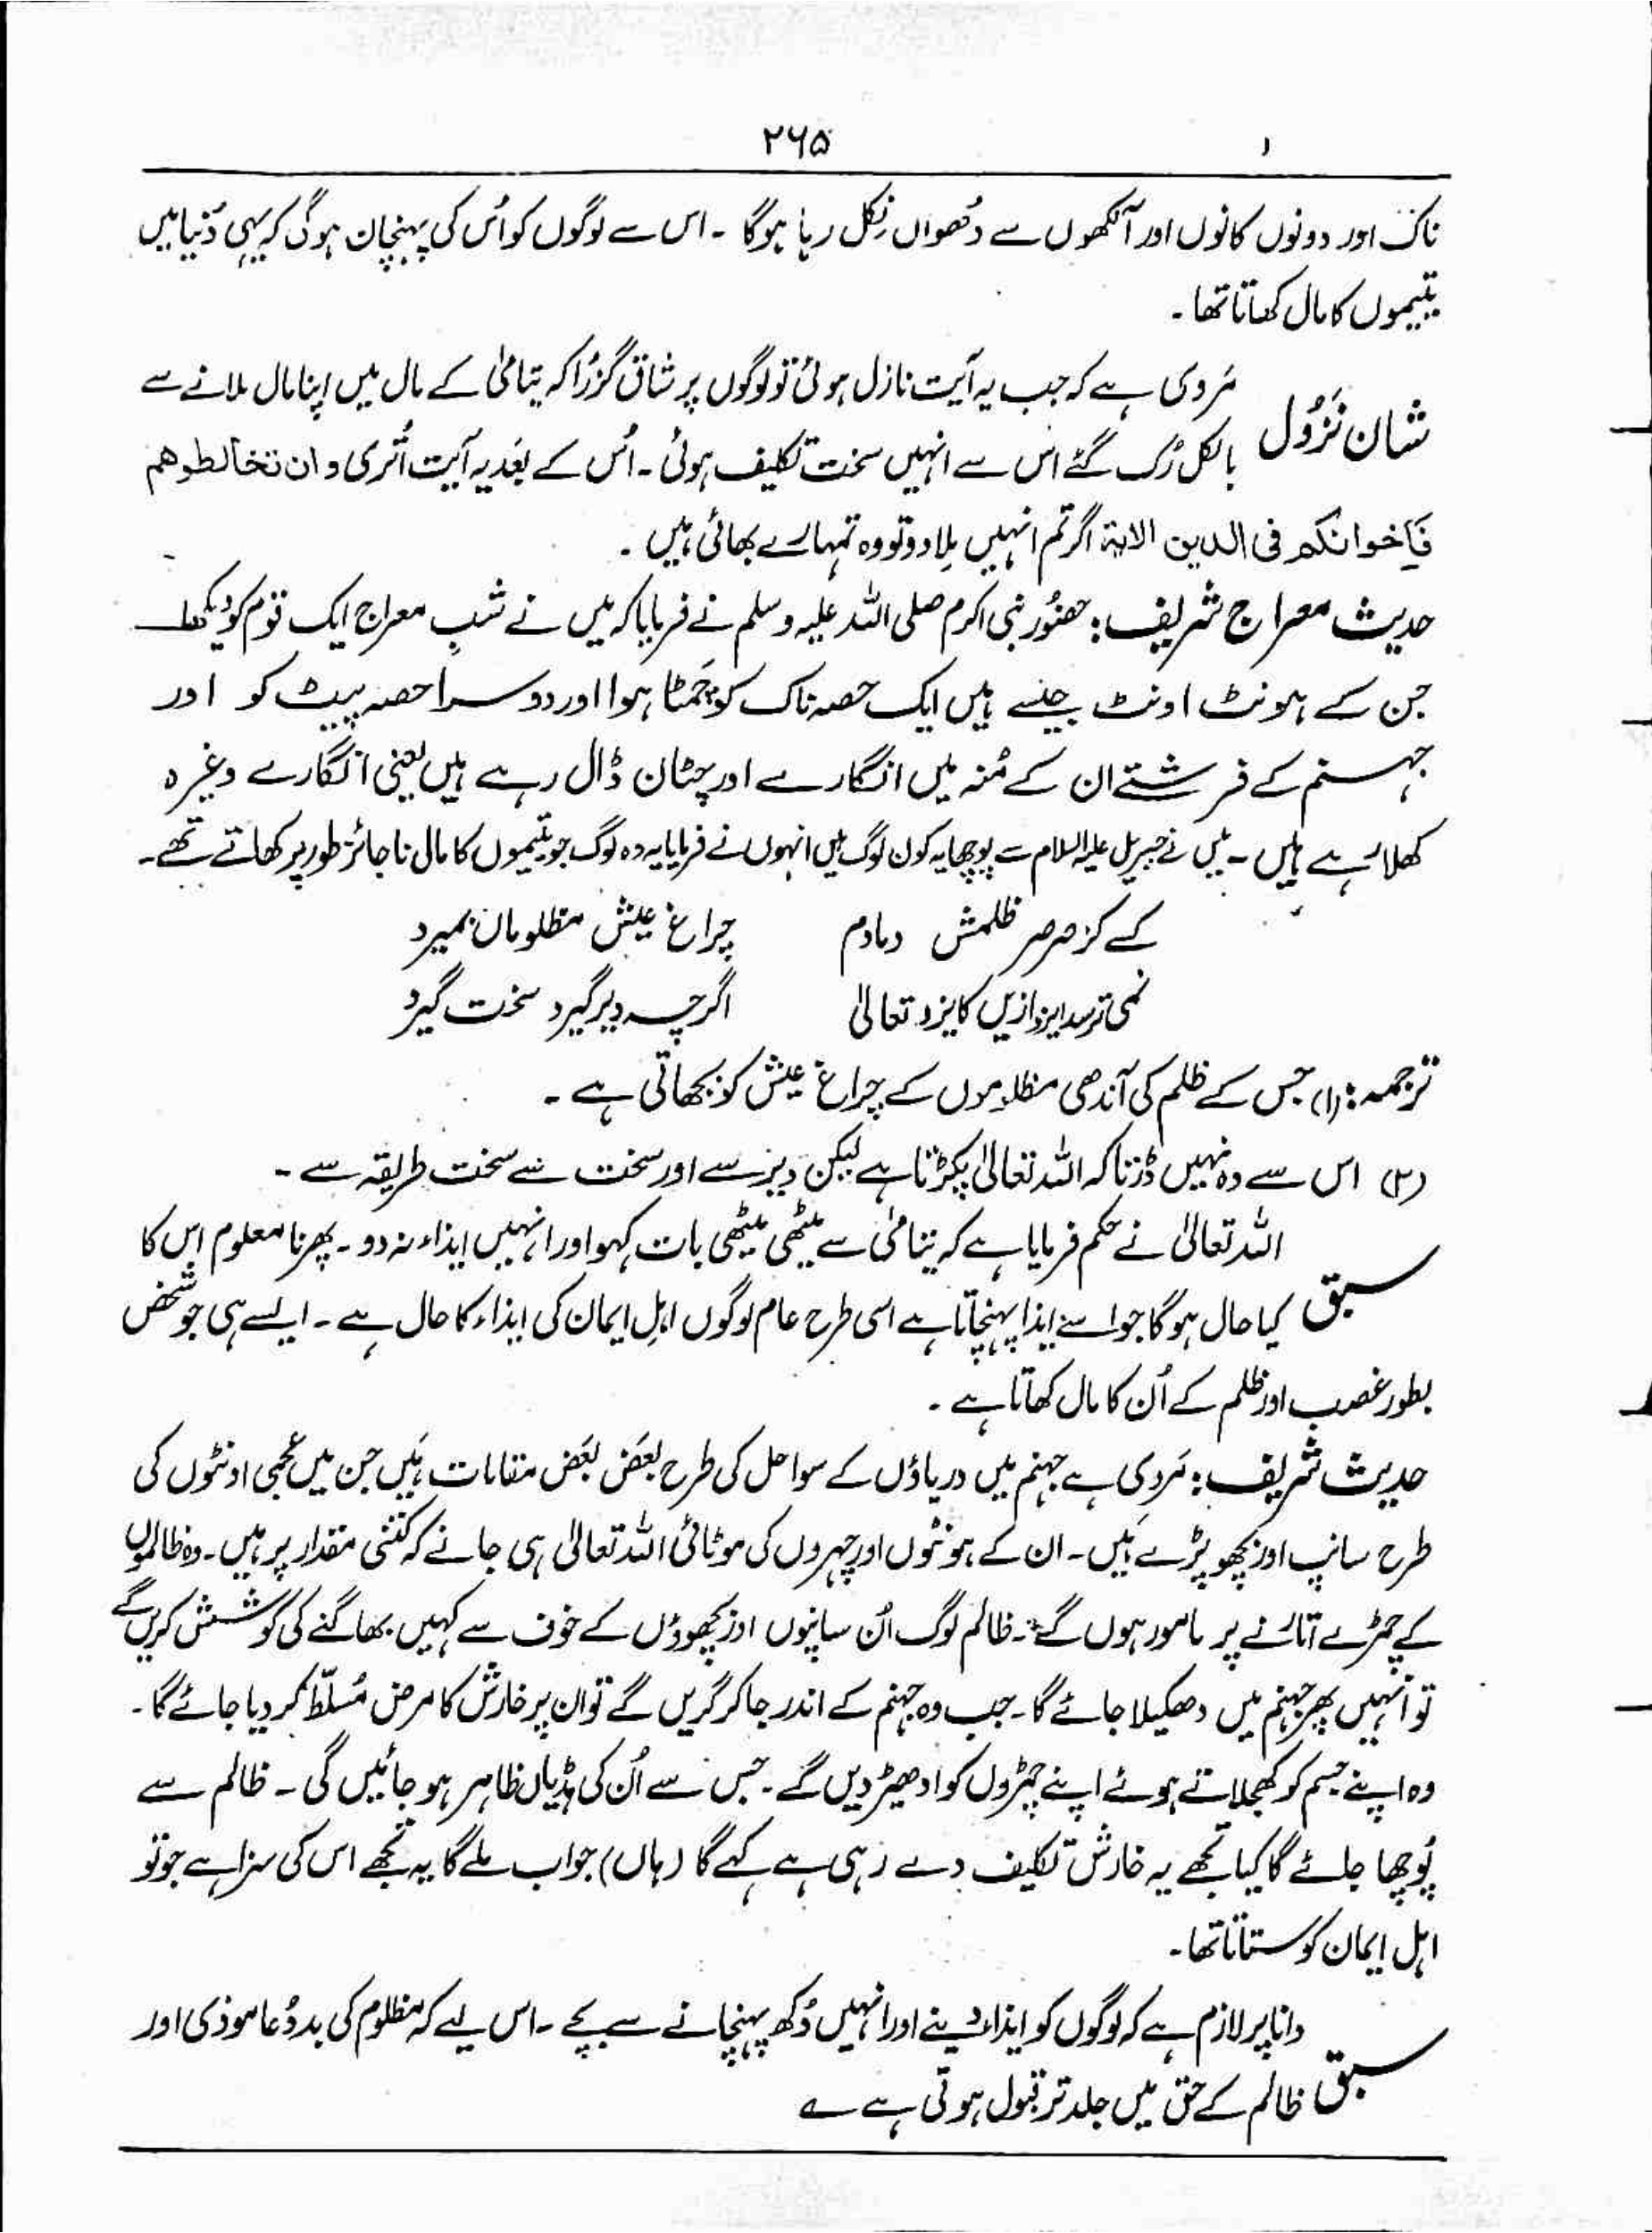 ۲۶۵
ناک اور دونوں کانوں اور آنکھوں سے دُھواں نِکل رہا ہوگا ۔ اس سے لوگوں کو اُس کی پہنچان ہوگی کہ یہی دُنیا میں
یتیموں کا مال کھاتا تھا ۔
شان نزُول
مَروی ہے کہ جب یہ آیت نازل ہوئی تو لوگوں پر شاق گزُرا کہ یتامٰی کے مال میں اپنا مال ملانے سے
بالکل رُک گئے اس سے انہیں سخت تکلیف ہوئی ۔ اُس کے بعَد یہ آیت اُتری و ان تخالطوھم
فَاِخوانکم فی الدین الایۃ اگر تم انہیں مِلا دو تو وہ تمہارے بھائی ہیں ۔
حدیث معراج شریف : حضُور نبی اکرم صلی اللہ علیہ وسلم نے فرمایا کہ میں نے شبِ معراج ایک قوم کو دیکھا
جن کے ہونٹ اونٹ جیسے ہیں ایک حصہ ناک کو چمٹا ہوا اور دوسرا حصہ پیٹ کو اور
جہنم کے فرشتے ان کے مُنہ میں انگارے اور چٹان ڈال رہے ہیں یعنی انگارے وغیرہ
کھلا رہے ہیں ۔ میں نے جبریل علیہ السلام سے پوچھا یہ کون لوگ ہیں انہوں نے فرمایا یہ وہ لوگ جو یتیموں کا مال ناجائز طور پر کھاتے تھے ۔
کسے کز صرصر ظلمش دمادم چراغ عیش مظلوماں بمیرد
نمی ترسد ایزد ازیں کایزد تعالیٰ اگرچہ دیر گیرد سخت گیرد
ترجمہ : (۱) جس کے ظلم کی آندھی مظلوموں کے چراغ عیش کو بجھاتی ہے ۔
(۲) اس سے وہ نہیں ڈرتا کہ اللہ تعالیٰ پکڑتا ہے لیکن دیر سے اور سخت سے سخت طریقہ سے ۔
سبق
اللہ تعالیٰ نے حکم فرمایا ہے کہ یتامٰی سے میٹھی میٹھی بات کہو اور انہیں ایذاء نہ دو ۔ پھر نا معلوم اس کا
کیا حال ہوگا جو اسے ایذا پہنچاتا ہے اسی طرح عام لوگوں اہلِ ایمان کی ایذاء کا حال ہے ۔ ایسے ہی جو شخص
بطور غصب اور ظلم کے اُن کا مال کھاتا ہے ۔
حدیث شریف : مَروی ہے جہنم میں دریاؤں کے سواحل کی طرح بعَض بعَض مقامات ہَیں جن میں عجمی اونٹوں کی
طرح سانپ اور بچھو پڑے ہَیں ۔ ان کے ہونٹوں اور چہروں کی موٹائی اللہ تعالیٰ ہی جانے کہ کتنی مقدار پر ہیں ۔ وہ ظالموں
کے چمڑے اتارنے پر مامور ہوں گے ۔ ظالم لوگ اُن سانپوں اور بچھوؤں کے خوف سے کہیں بھاگنے کی کوشش کریں گے
تو انہیں پھر جہنم میں دھکیلا جائے گا ۔ جب وہ جہنم کے اندر جا کر گریں گے تو ان پر خارش کا مرض مُسلّط کر دیا جائے گا ۔
وہ اپنے جسم کو کھجلاتے ہوئے اپنے چمڑوں کو ادھیڑ دیں گے ۔ جس سے اُن کی ہڈیاں ظاہر ہو جائیں گی ۔ ظالم سے
پُوچھا جائے گا کیا تجھے یہ خارش تکلیف دے رہی ہے کہے گا (ہاں) جواب ملے گا یہ تجھے اس کی سزا ہے جو تو
اہل ایمان کو ستاتا تھا ۔
سبق
دانا پر لازم ہے کہ لوگوں کو ایذاء دینے اور انہیں دُکھ پہنچانے سے بچے ۔ اس لیے کہ مظلوم کی بد دُعا موذی اور
ظالم کے حق میں جلد تر قبول ہوتی ہے ؎